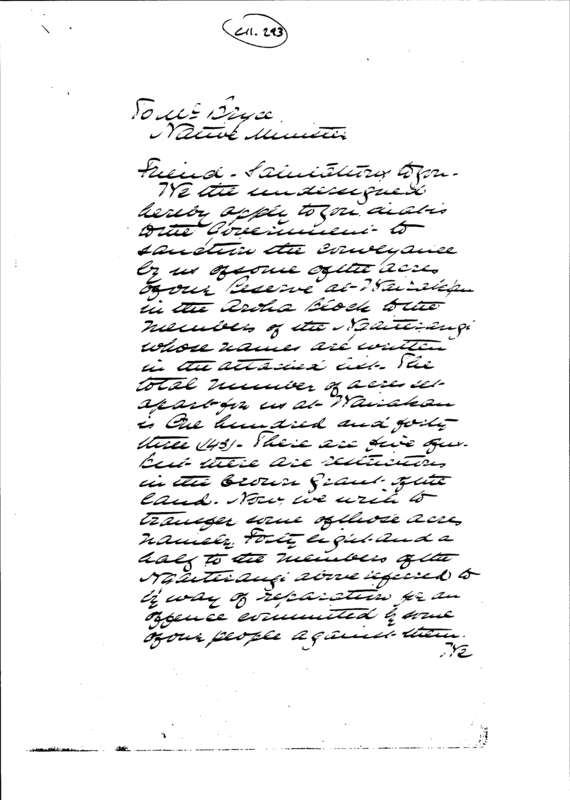 CH. 293
To Mr Bryce
Native Minister
Friend - Salutations to you -
We the undersigned
hereby apply to you and also
to the Government to
sanction the conveyance
by us of some of the acres
of our Reserve at Wairakau
in the Aroha Block to the
members of the Ngaiterangi
whose names are written
in the attached list. The
total number of acres set
apart for us at Wairakau
is One hundred and forty
three (143) - There are five of us.
But there are restrictions
in the Crown Grant of the
land. Now, we wish to
transfer some of those acres
namely, Forty eight and a
half to the members of the
Ngaiterangi above referred to
by way of reparation for an
offence committed by some
of our people against them.
We